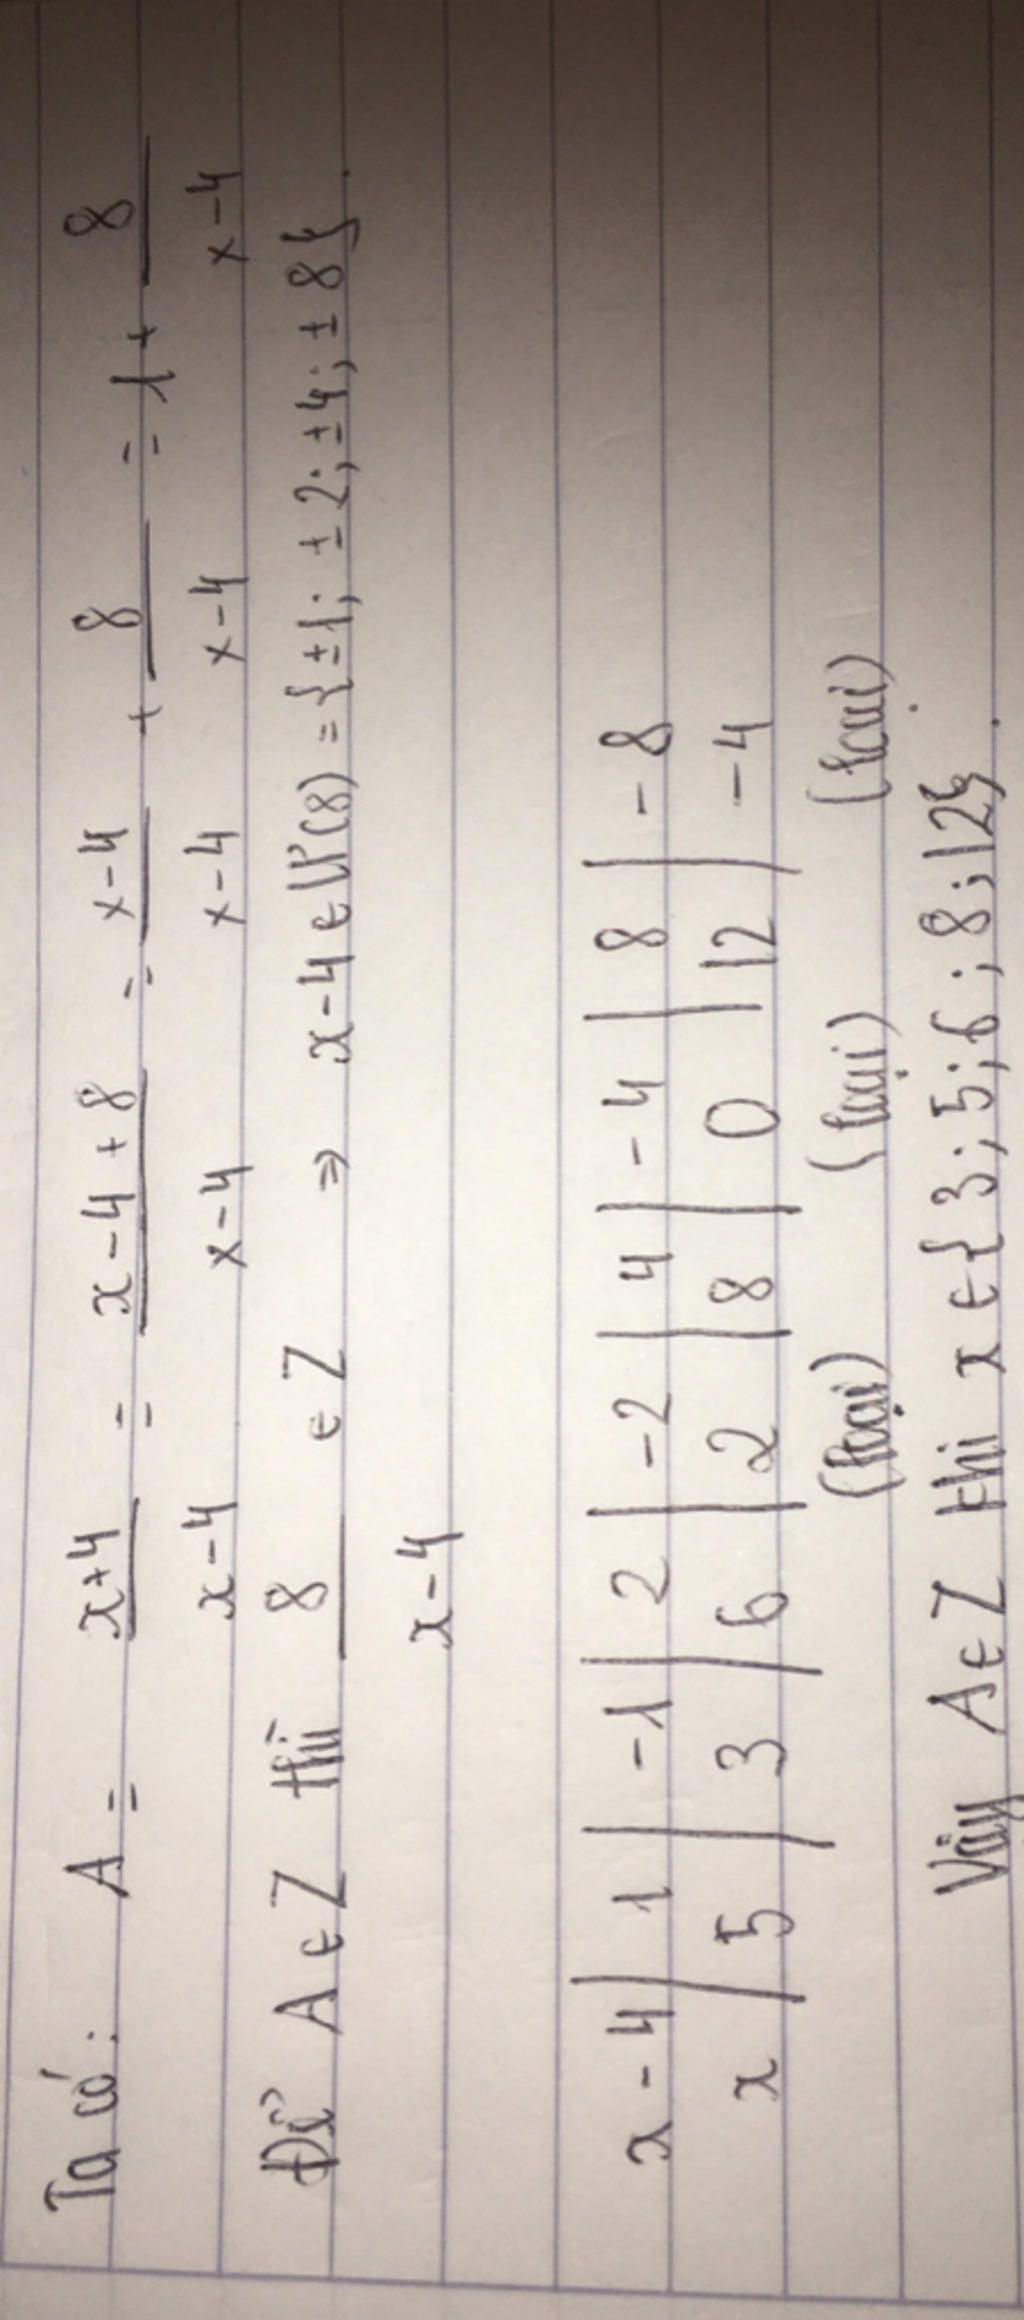 Ta có: A = x+4 / x-4 = x-4+8 / x-4 = x-4 / x-4 + 8 / x-4 = 1 + 8 / x-4
Để A ∈ Z thì 8 / x-4 ∈ Z ⇒ x-4 ∈ Ư(8) = {±1; ±2; ±4; ±8}.
x-4 | 1 | -1 | 2 | -2 | 4 | -4 | 8 | -8
x | 5 | 3 | 6 | 2 | 8 | 0 | 12 | -4
(loại) (loại) (loại)
Vậy A ∈ Z khi x ∈ {3; 5; 6; 8; 12}.